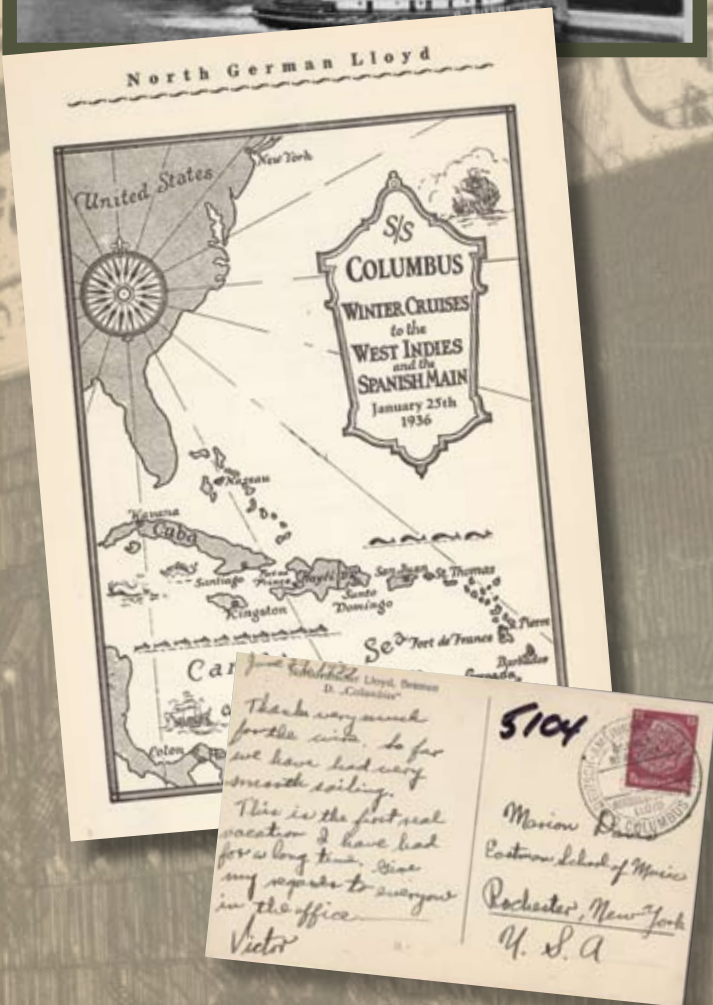 North German Lloyd
New York
United States
S/S
COLUMBUS
WINTER CRUISES
to the
WEST INDIES
and the
SPANISH MAIN
January 25th
1936
Nassau
Havana
Cuba
Santiago
Port au
Prince
Hayti
San Juan
St. Thomas
Santo
Domingo
Kingston
St. Pierre
Sea
Fort de France
Barbados
Grenada
Car
Colon
June
Norddeutscher Lloyd, Bremen
D. „Columbus"
Thanks very much
for the wire. So far
we have had very
smooth sailing.
This is the first real
vacation I have had
for a long time. Give
my regards to everyone
in the office
Victor
5104
LLOYD
COLUMBUS
Marion
Eastman School of Music
Rochester, New York
U. S. A